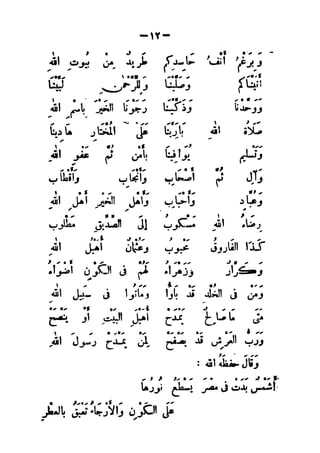 — ١٢ —
وَيَرْغُمُ أَنْفُ حَاسِدِكُمْ طَرِيدٌ مِنْ بُيُوتِ اللهِ
أَتَيْنَاكُمْ وَصَلَّيْنَا وَلِلرَّحْمٰنِ لَبَّيْنَا
وَوَحَّدْنَا وَذَكَّيْنَا رَجَوْنَا الْخَيْرَ بِاسْمِ اللهِ
صَلَاةُ اللهِ بَارِينَا عَلَى الْمُخْتَارِ هَادِينَا
وَتَسْلِيمٌ يُوَافِينَا بِأَمْنٍ ثُمَّ عَفْوِ اللهِ
وَآلٍ ثُمَّ أَصْحَابٍ وَأَنْجَابٍ وَأَقْطَابٍ
وَعُبَّادٍ وَأَحْبَابٍ وَأَهْلِ الْخَيْرِ أَهْلِ اللهِ
رِضَاءُ اللهِ مَسْكُوبٌ إِلَى الصِّدِّيقِ مَطْلُوبٌ
كَذَا الْفَارُوقُ مَحْبُوبٌ وَعُثْمَانٌ أُهَيْلُ اللهِ
وَكَرَّارٌ وَزَهْرَاءُ لَهُمْ فِى الْكَوْنِ أَضْوَاءُ
وَمَنْ فِى الْخُلْدِ قَدْ بَاؤُا وَمَاتُوا فِى سَبِيلِ اللهِ
مَتَى مَا صَالِحٌ يَمْدَحْ أُهَيْلَ الْبَيْتِ أَوْ يَنْصَحْ
وَرَبُّ الْعَرْشِ قَدْ يَصْفَحْ لِمَنْ يَمْدَحْ رَسُولَ اللهِ
وَقَالَ حَفِظَهُ اللهُ :
أَشَمْسٌ بَدَتْ فِى مِصْرَ يَسْطَعُ نُورُهَا
عَلَى الْكَوْنِ وَالْأَرْجَاءُ تَعْبَقُ بِالْعِطْرِ